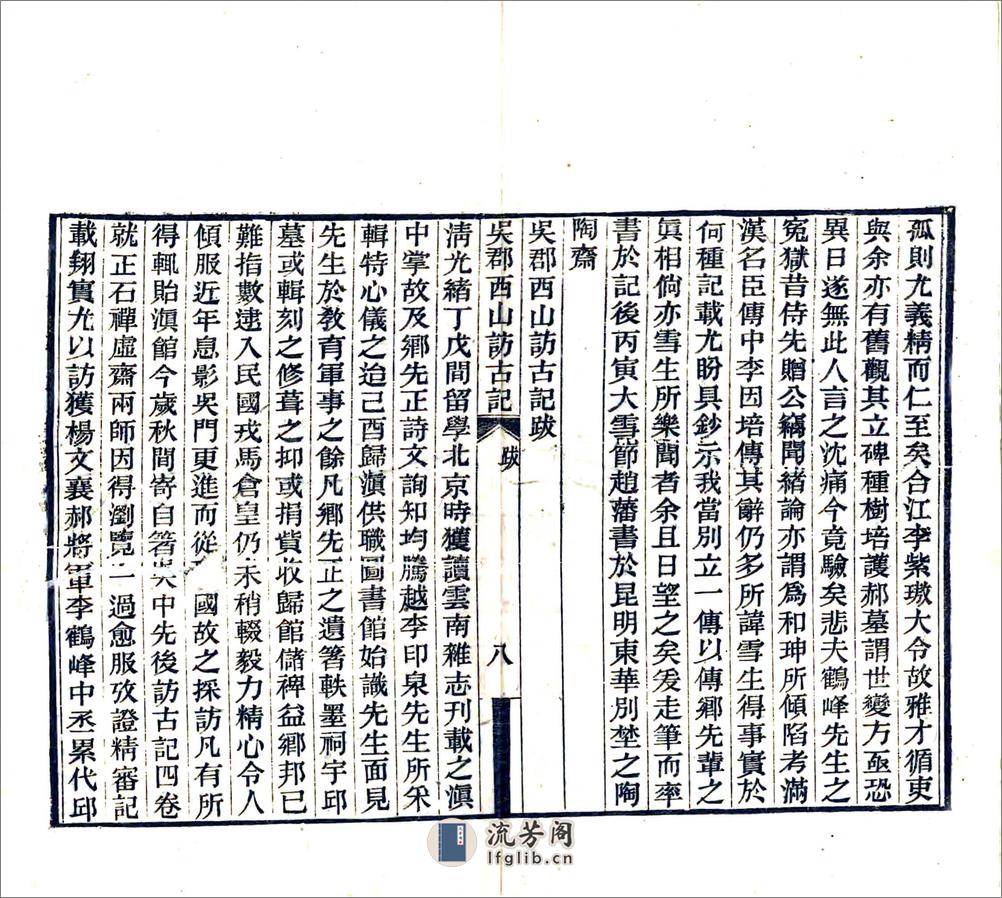 孤則尤義精而仁至矣合江李紫璈大令故雅才循吏
與余亦有舊觀其立碑種樹培護郝墓謂世變方亟恐
異日遂無此人言之沈痛今竟驗矣悲夫鶴峰先生之
冤獄昔侍先贈公竊聞緒論亦謂爲和珅所傾陷考滿
漢名臣傳中李因培傳其辭仍多所諱雪生得事實於
何種記載尤盼具鈔示我當別立一傳以傳鄉先輩之
眞相倘亦雪生所樂聞者余且日望之矣爰走筆而率
書於記後丙寅大雪節趙藩書於昆明東華別埜之陶
陶齋
吳郡西山訪古記跋
吳郡西山訪古記
跋
八
淸光緒丁戊間留學北京時獲讀雲南雜志刊載之滇
中掌故及鄉先正詩文詢知均騰越李印泉先生所采
輯特心儀之迨己酉歸滇供職圖書館始識先生面見
先生於敎育軍事之餘凡鄉先正之遺箸軼墨祠宇邱
墓或輯刻之修葺之抑或捐貲收歸館儲裨益鄉邦已
難指數逮入民國戎馬倉皇仍未稍輟毅力精心令人
傾服近年息影吳門更進而從 國故之採訪凡有所
得輒貽滇館今歲秋間寄自箸吳中先後訪古記四卷
就正石禪虛齋兩師因得瀏覽一過愈服攷證精審記
載翔實尤以訪獲楊文襄郝將軍李鶴峰中丞累代邱
流芳阁
lfglib.cn